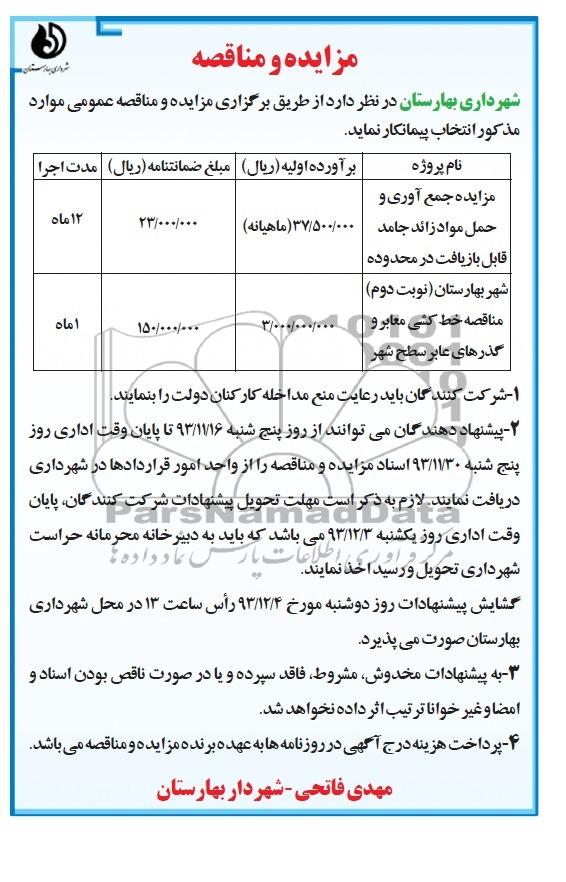 شهرداری بهارستان
مزایده و مناقصه
شهرداری بهارستان در نظر دارد از طریق برگزاری مزایده و مناقصه عمومی موارد
مذکور انتخاب پیمانکار نماید.
نام پروژه	برآورده اولیه (ریال)	مبلغ ضمانتنامه (ریال)	مدت اجرا
مزایده جمع آوری و
حمل مواد زائد جامد	۳۷/۵۰۰/۰۰۰(ماهیانه)	۲۳/۰۰۰/۰۰۰	۱۲ماه
قابل بازیافت در محدوده
شهر بهارستان (نوبت دوم)
مناقصه خط کشی معابر و	۳/۰۰۰/۰۰۰/۰۰۰	۱۵۰/۰۰۰/۰۰۰	۱ماه
گذرهای عابر سطح شهر
۱-شرکت کنندگان باید رعایت منع مداخله کارکنان دولت را بنمایند.
۲-پیشنهاد دهندگان می توانند از روز پنج شنبه ۹۳/۱۱/۱۶ تا پایان وقت اداری روز
پنج شنبه ۹۳/۱۱/۳۰ اسناد مزایده و مناقصه را از واحد امور قراردادها در شهرداری
دریافت نمایند. لازم به ذکر است مهلت تحویل پیشنهادات شرکت کنندگان، پایان
ParsNamadData
وقت اداری روز یکشنبه ۹۳/۱۲/۳ می باشد که باید به دبیرخانه محرمانه حراست
مرکز فرآوری اطلاعات پارس نماد داده ها
شهرداری تحویل و رسید اخذ نمایند.
گشایش پیشنهادات روز دوشنبه مورخ ۹۳/۱۲/۴ رأس ساعت ۱۳ در محل شهرداری
بهارستان صورت می پذیرد.
۳-به پیشنهادات مخدوش، مشروط، فاقد سپرده و یا در صورت ناقص بودن اسناد و
امضا و غیر خوانا ترتیب اثر داده نخواهد شد.
۴-پرداخت هزینه درج آگهی در روزنامه ها به عهده برنده مزایده و مناقصه می باشد.
مهدی فاتحی - شهردار بهارستان